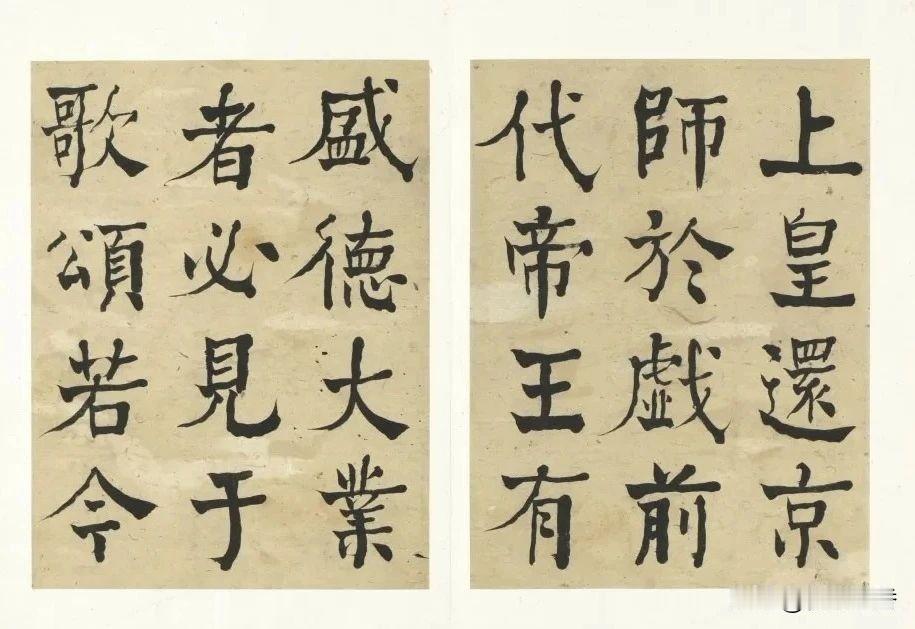 上皇還京
師於戱前
代帝王有
盛德大業
者必見于
歌頌若今